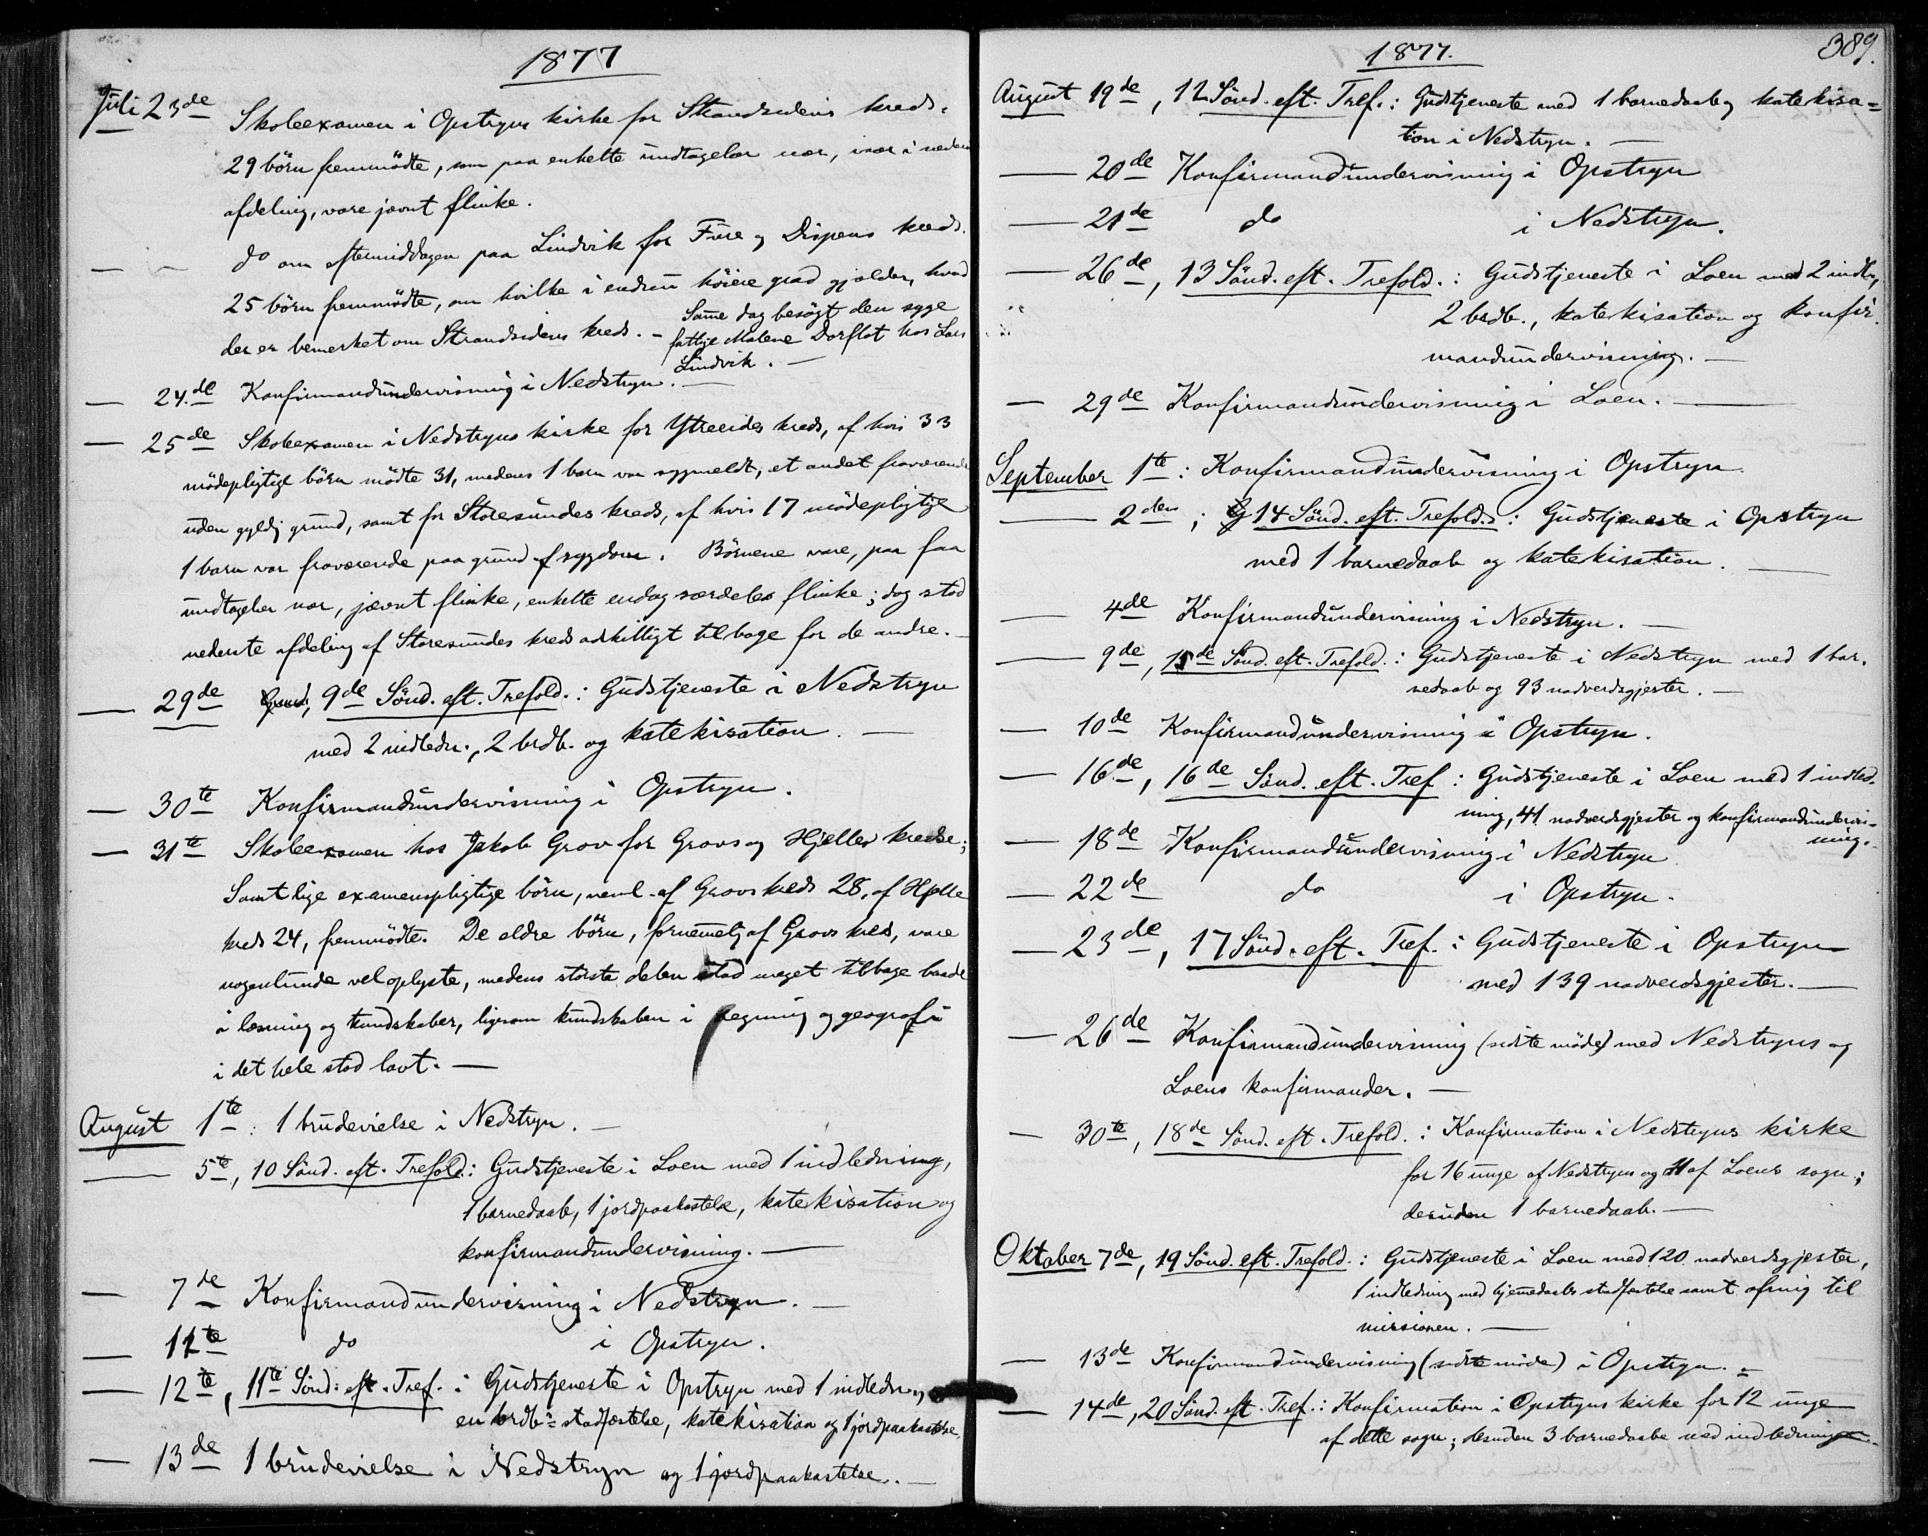 1877
Juli 23de Skoleexamen i Opstryns kirke for Strandsidens kreds.
29 börn fremmödte, som paa enkelte undtagelser nær, især i nederste
afdeling, vare jævnt flinke.
— — do om eftermiddagen paa Lindvik for Fure og Dispens kreds.
25 börn fremmödte, om hvilke i endnu höiere grad gjælder, hvad
der er bemerket om Strandsidens kreds. – Samme dag besögt den syge
fattige Malene Dorflot hos Lars
Lindvik. —
— 24.de Konfirmandundervisning i Nedstryn. —
— 25de Skoleexamen i Nedstryns kirke for Ytreeides kreds, af hvis 33
mödepligtige börn mödte 31, medens 1 barn var sygmeldt, et andet fraværende
uden gyldig grund, samt for Storesundes kreds, af hvis 17 mödepligtige
1 barn var fraværende paa grund af sygdom. Börnene vare, paa faa
undtagelser nær, jævnt flinke, enkelte endog særdeles flinke; dog stod
nederste afdeling af Storesundes kreds adskilligt tilbage for de andre. —
— 29de 9de Sönd. eft. Trefold.: Gudstjeneste i Nedstryn
med 2 indledn., 2 brdb. og katekisation. —
— 30te Konfirmandundervisning i Opstryn.
— 31te Skoleexamen hos Jakob Grov for Grovs og Hjelles kredse;
Samtlige examenspligtige börn, neml. af Grovs kreds 28, af Hjelle
kreds 24, fremmödte. De eldre börn, fornemmelig af Grovs kreds, vare
nogenlunde vel oplyste, medens störste delen stod meget tilbage baade
i læsning og kundskaber, ligesom kundskaben i regning og geografi
i det hele stod lavt. —
August 1te : 1 brudevielse i Nedstryn. —
— 5te, 10 Sönd. eft. Trefold: Gudstjeneste i Loen med 1 indledning,
1 barnedaab, 1 jordpaakastelse, katekisation og
konfirmandundervisning. —
— 7de Konfirmandundervisning i Nedstryn. —
— 11te do i Opstryn.
— 12te, 11te Sönd: eft. Tref. : Gudstjeneste i Opstryn med 1 indledn.,
en brdb.= stadfæstelse, katekisation og 1 jordpaakastelse.
— 13de 1 brudevielse i Nedstryn og 1 jordpaakastelse. —
1877.
389.
August 19de, 12 Sönd. eft. Tref.: Gudstjeneste med 1 barnedaab og katekisa=
tion i Nedstryn. —
— 20de Konfirmandundervisning i Opstryn
— 21de do i Nedstryn.
— 26de, 13 Sönd. eft. Trefold. : Gudstjeneste i Loen med 2 indln,
2 brdb., katekisation og konfir.
mandundervisning. —
— 29de Konfirmandundervisning i Loen. —
September 1te : Konfirmandundervisning i Opstryn.
— 2den ; 14 Sönd. eft. Trefold. : Gudstjeneste i Opstryn
med 1 barnedaab og katekisation. —
— 4de Konfirmandundervisning i Nedstryn. —
— 9de, 15de Sönd. eft. Trefold. : Gudstjeneste i Nedstryn med 1 bar.
nedaab og 93 nadverdsgjester. —
— 10de Konfirmandundervisning i Opstryn.
— 16de, 16de Sönd. eft. Tref : Gudstjeneste i Loen med 1 indled.
ning, 41 nadverdsgjester og konfirmandundervis-
ning.
— 18de Konfirmandundervisning i Nedstryn
— 22de do i Opstryn.
— 23de, 17 Sönd. eft. Tref. : Gudstjeneste i Opstryn
med 139 nadverdsgjester. —
— 26de Konfirmandundervisning (sidste möde) med Nedstryns og
Loens konfirmander. —
— 30te, 18de Sönd. eft. Trefold. : Konfirmation i Nedstryns kirke
for 16 unge af Nedstryns og 11 af Loens sogn;
desuden 1 barnedaab. —
Oktober 7de, 19 Sönd. eft. Trefold. : Gudstjeneste i Loen med 120 nadverdsgjester,
1 indledning med hjemmedaabs stadfæstelse samt ofring til
missionen. —
— 13de Konfirmandundervisning (sidste möde) i Opstryn. =
— 14de, 20 Sönd. eft. Tref. : Konfirmation i Opstryns kirke for 12 unge
af dette sogn; desuden 3 barnedaabe med indledning.